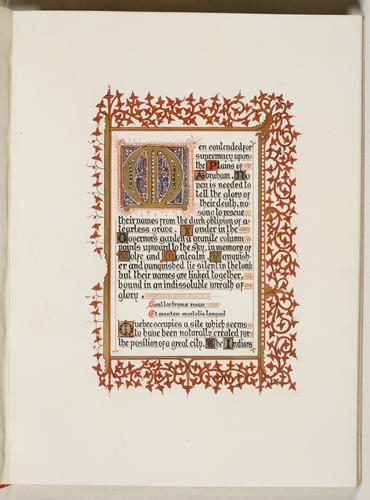 Men contended for
supremacy upon
the Plains of
Abraham. No
pen is needed to
tell the glory of
their death, no
song to rescue
their names from the dark oblivion of a
fearless grave. Yonder in the
Governor's garden a granite column
points upward to the sky, in memory of
Wolfe and Montcalm. Vanquish-
er and vanquished lie silent in the tomb
but their names are linked together,
bound in an indissoluble wreath of
glory.
Sunt lachrymæ rerum
Et mentem mortalia tangunt
Quebec occupies a site which seems
to have been naturally created for
the position of a great city. The Indians